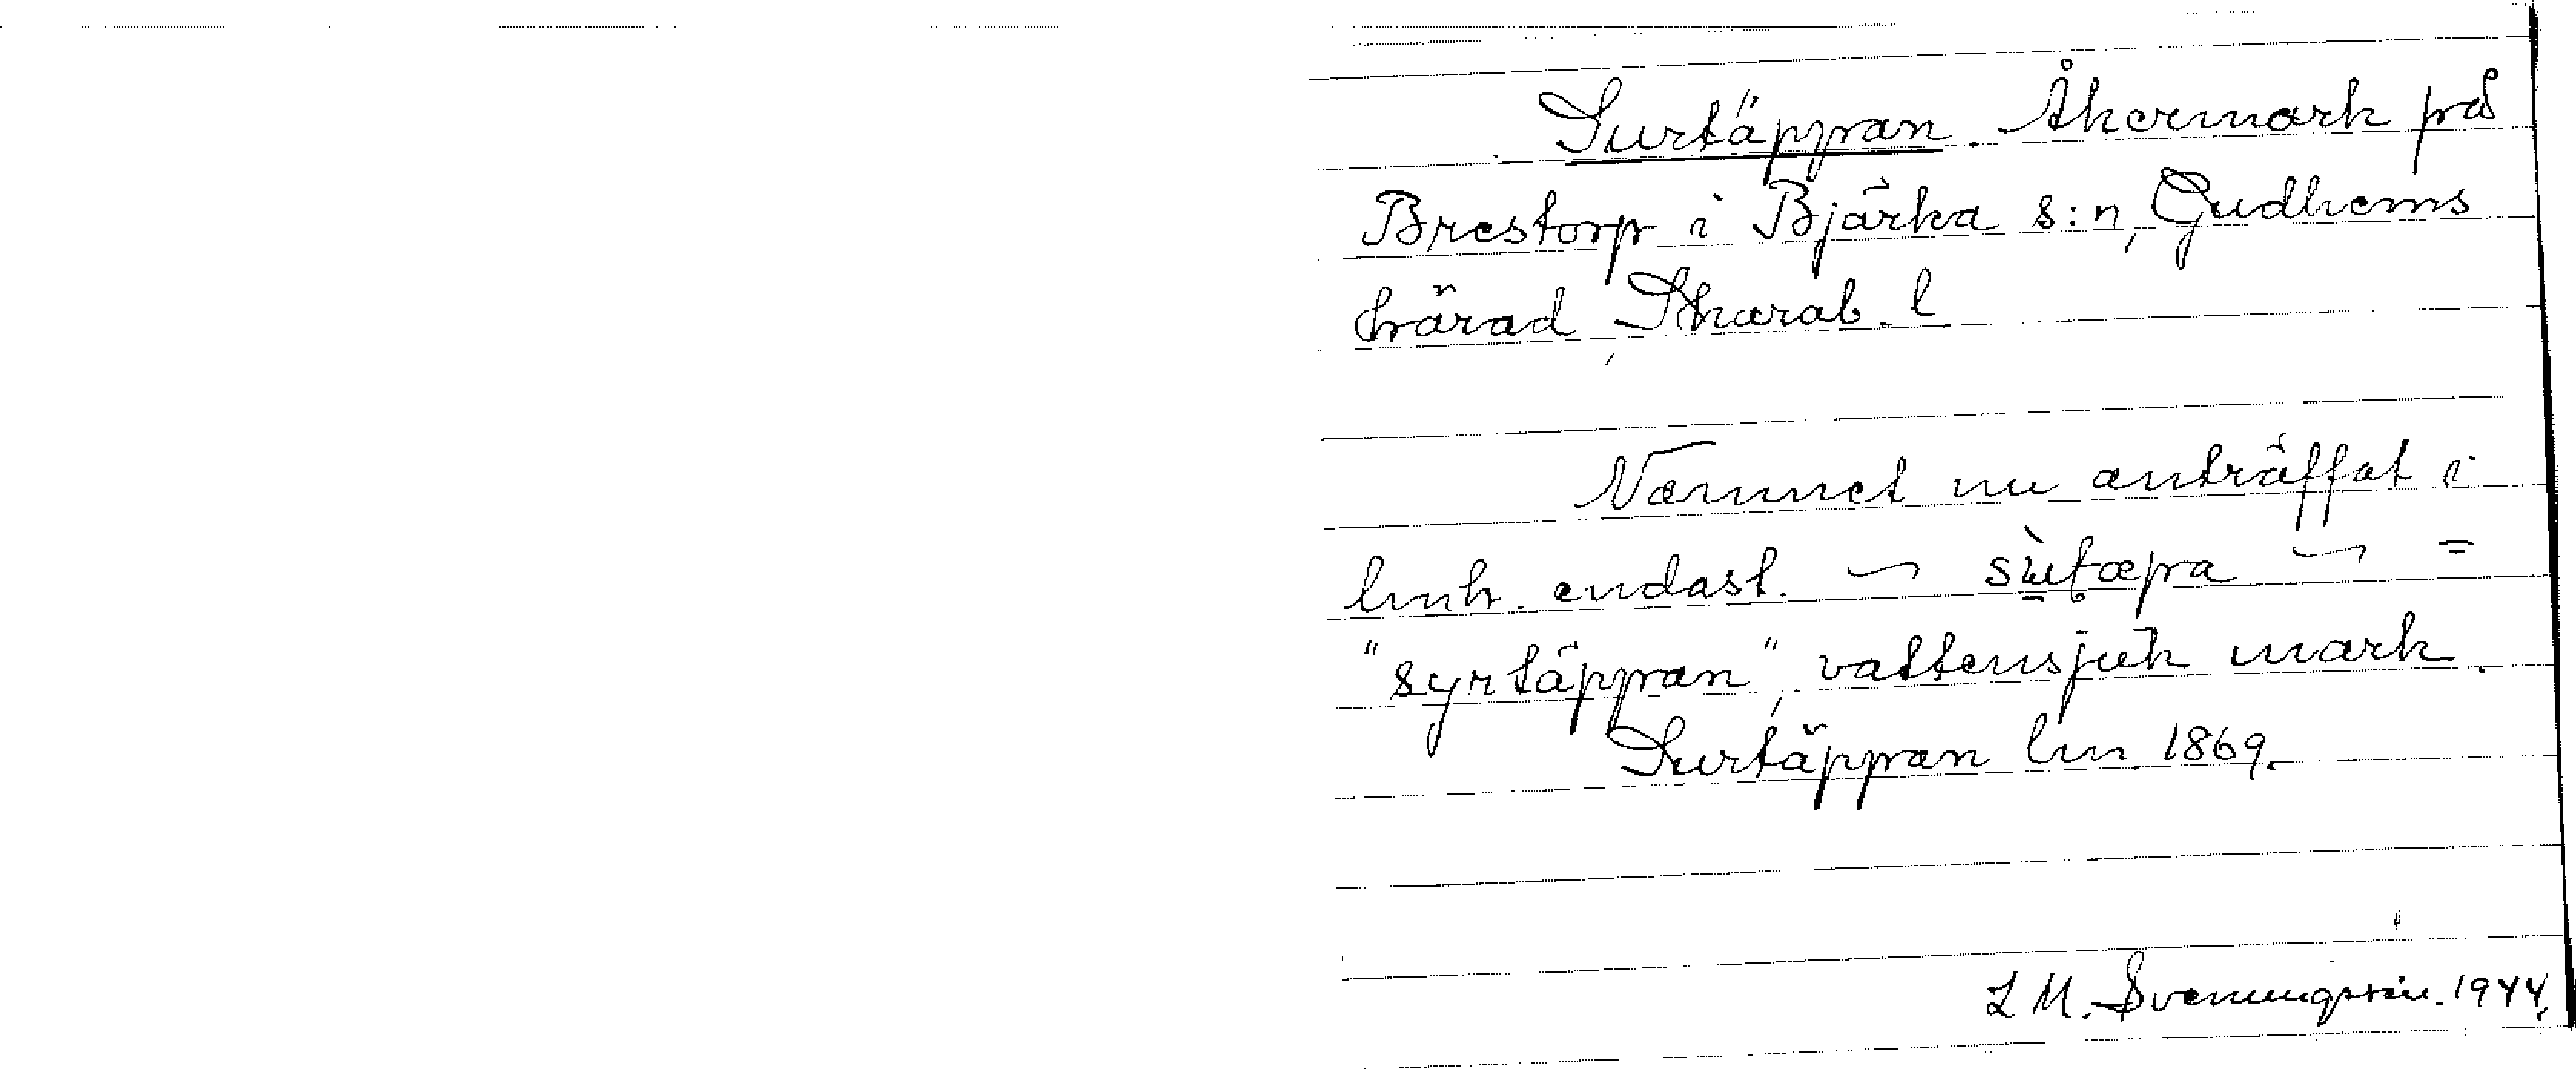 Surtäppan. Åkermark på
Brestorp i Bjärka s:n, Gudhems
härad, Skarab. l
Namnet nu anträffat i
lmk. endast. ~ sùtæpa ~ =
"syrtäppan", vattensjuk mark.
Surtäppan lm 1869.
L M. Svenungsson. 1944.